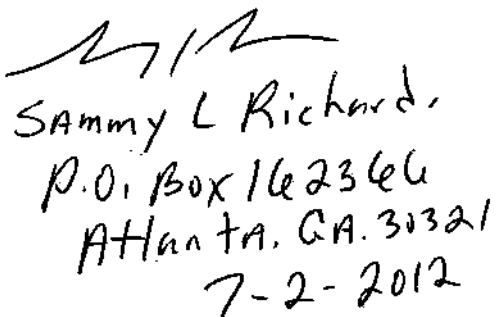 SAmmy L Richard.
P.O. Box 162366
Atlanta. GA. 30321
7-2-2012